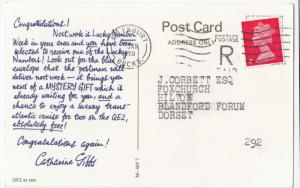 Congratulations!
Next week is Lucky Number
Week in your area and you have been
selected to receive one of the Lucky
Numbers! Look out for the blue
envelope that the postman will
deliver next week — it brings you
news of a MYSTERY GIFT which is
already waiting for you, and a
chance to enjoy a luxury trans-
atlantic cruise for two on the QE2,
absolutely free!
Congratulations again!
Catharine Tibbs
QE2 at sea
Post Card
ADDRESS ONLY
POSTAGE
R
BUCKS.
J.CORBETT ESQ
FOXCHURCH
HILTON
BLANDFORD FORUM
DORSET
292